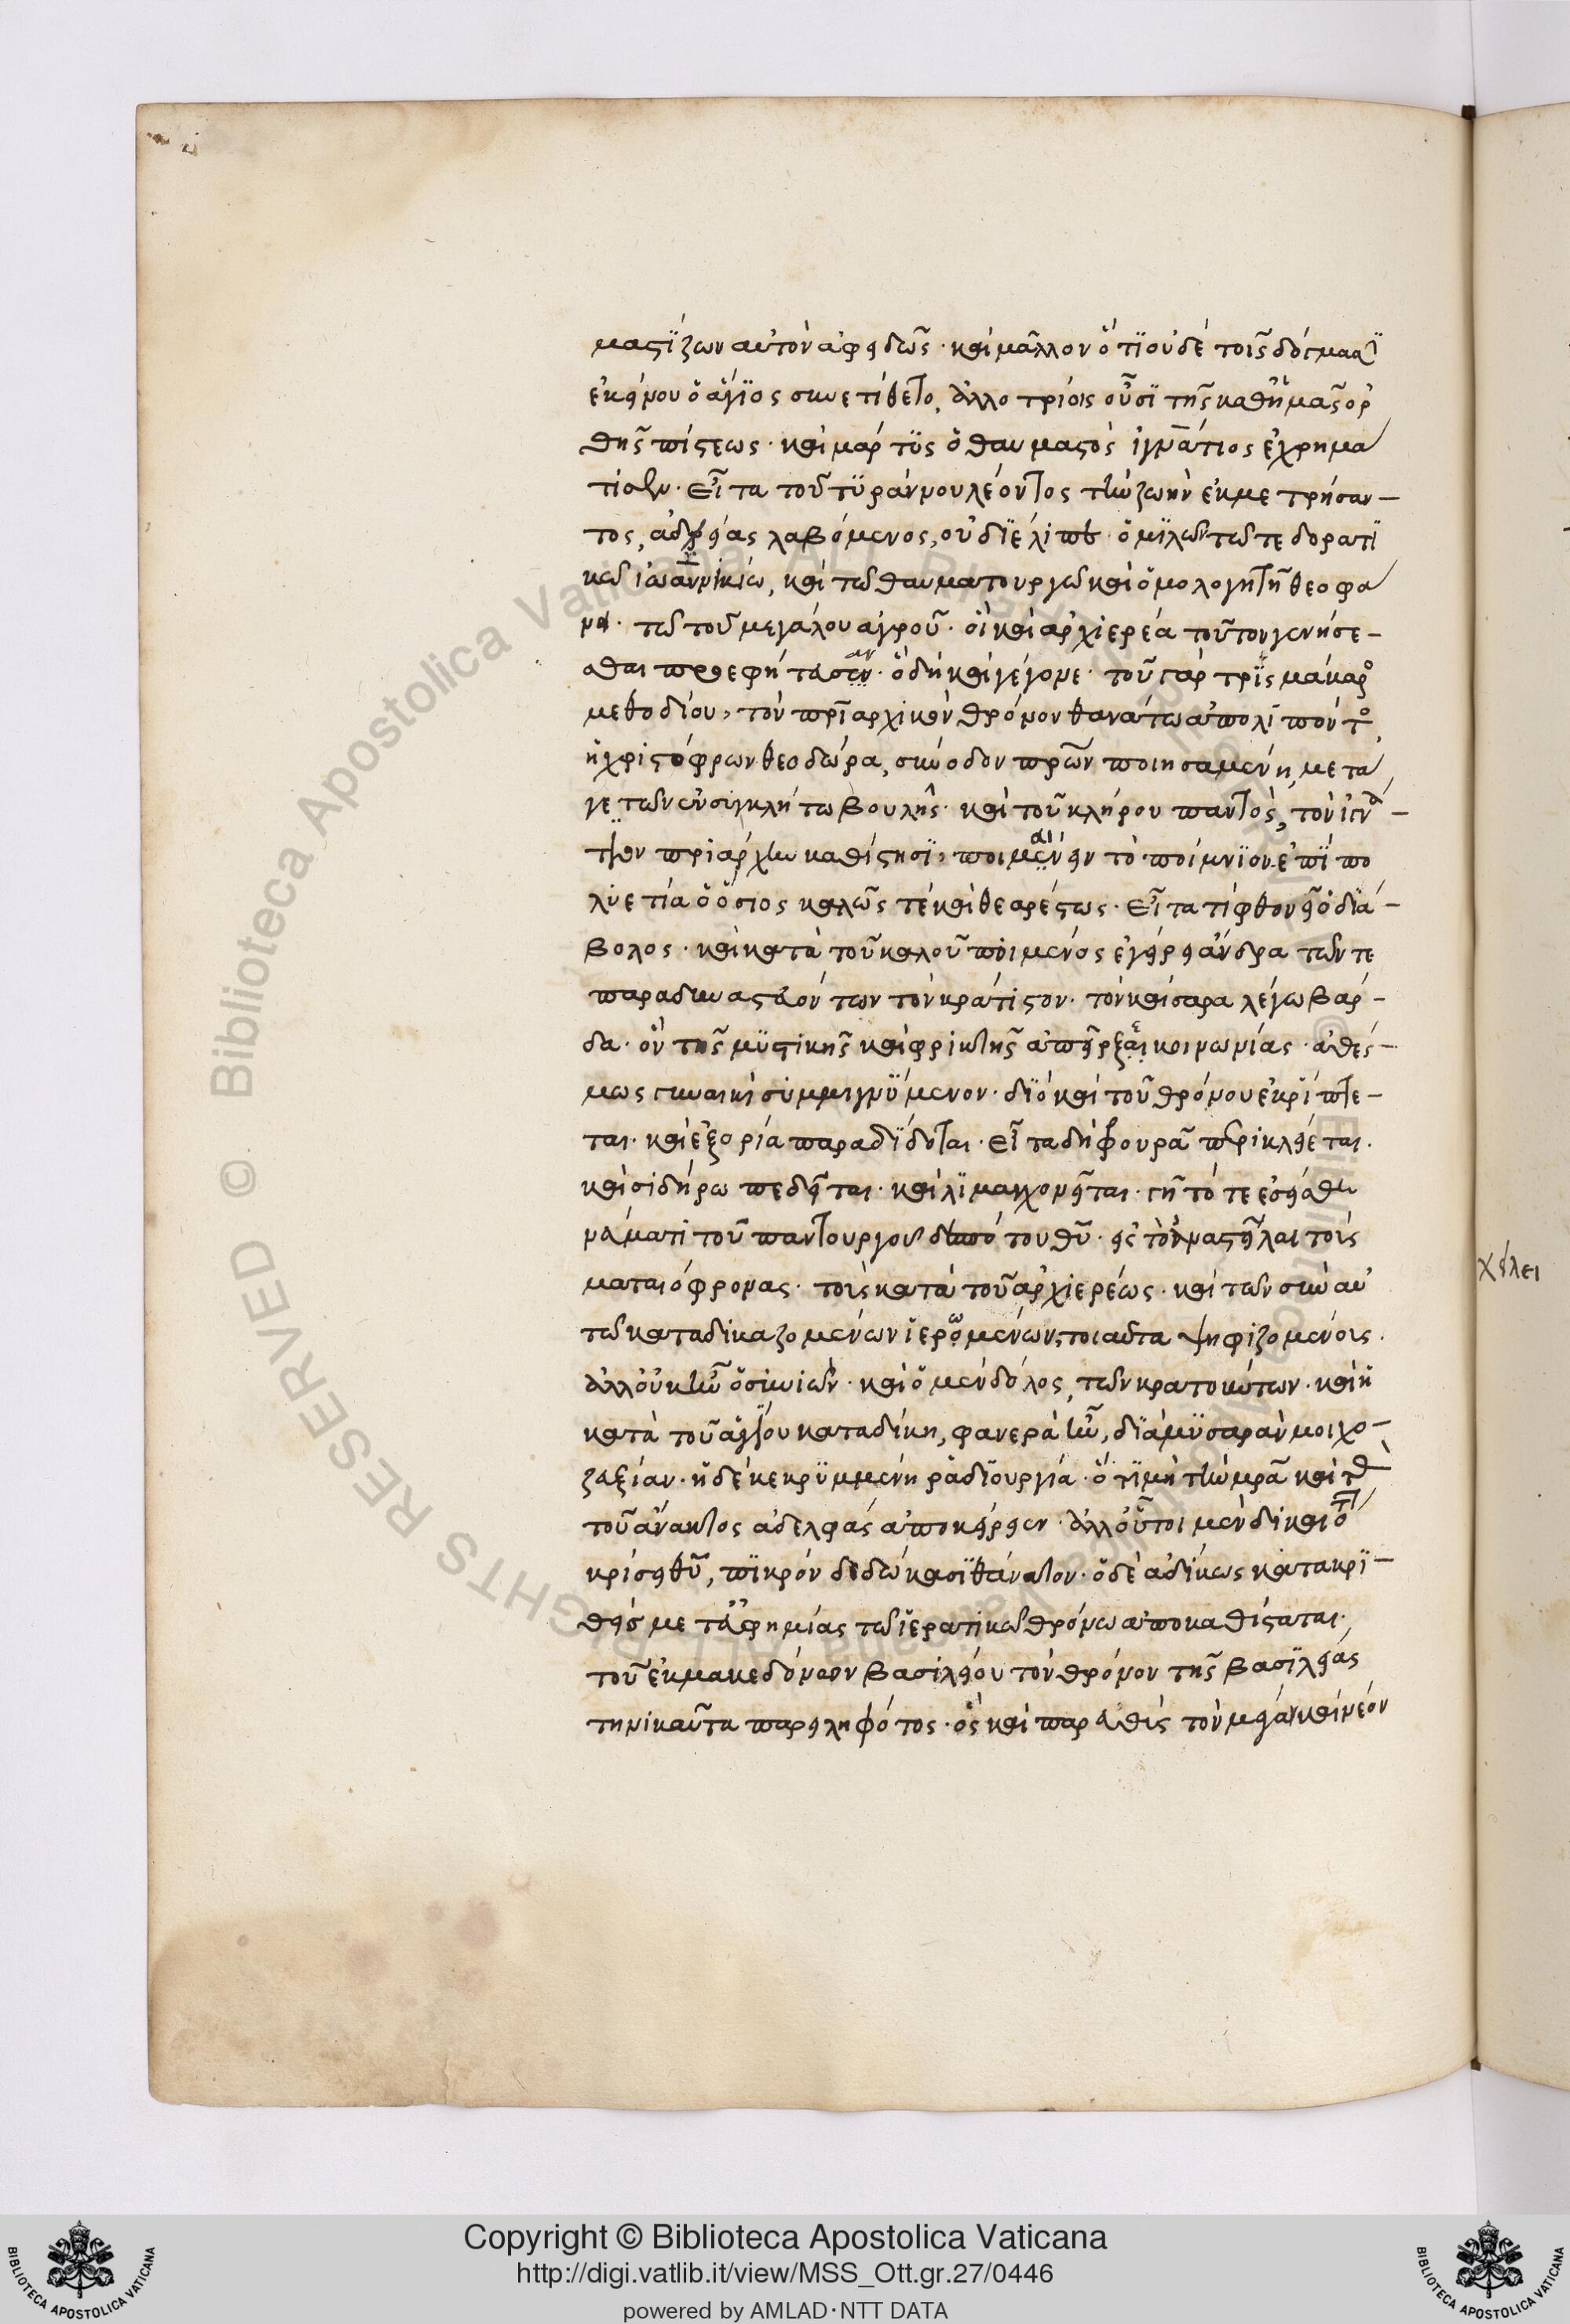 μαστίζων αὐτὸν ἀφειδῶς· καὶ μᾶλλον ὅτι οὐδὲ τοῖς δόγμασι
ἐκείνου ὁ ἅγιος συνετίθετο, ἀλλοτρίοις οὖσι τῆς καθ' ἡμᾶς ὀρ
θῆς πίστεως· καὶ μάρτυς ὁ θαυμαστὸς ἰγνάτιος ἐχρημά
τισεν· εἶτα τοῦ τυράννου λέοντος τὴν ζωὴν ἐκμετρήσαν–
τος, ἀδείας λαβόμενος, οὐ διέλιπεν ὁμιλῶν τῶ τε διορατι
κῶ ἰωαννικίω, καὶ τῶ θαυματουργῶ καὶ ὁμολογητῆ θεοφά
νει· τῶ τοῦ μεγάλου ἀγροῦ· οἳ καὶ ἀρχιερέα τοῦτον γενήσε–
σθαι προεφήτευσαν· ὃ δὴ καὶ γέγονε· τοῦ γὰρ τρισμάκαρος
μεθοδίου, τὸν πριαρχικὸν θρόνον θανάτω ἀπολιπόντος,
ἡ χριστόφρων θεοδώρα, σύνοδον πρῶν ποιησαμένη, μετά
γε τῶν ἐν συγκλήτω βουλῆς· καὶ τοῦ κλήρου παντὸς, τὸν ἰγνά–
τιον πριάρχην καθίστησι, ποιμαίνειν τὸ ποίμνιον· ἐπὶ πο
λυετία ὁ ὅσιος καλῶς τὲ καὶ θεαρέστως· εἶτα τί φθονεῖ ὁ διά–
βολος· καὶ κατὰ τοῦ καλοῦ ποιμένος ἐγείρει ἄνδρα τῶν τε
παραδυναστευόντων τὸν κράτιστον· τὸν καίσαρα λέγω βάρ–
δα· ὃν τῆς μυστικῆς καὶ φρικτῆς ἀπεῖρξε κοινωνίας· ἀθέσ–
μως γυναικὶ συμμιγνύμενον· διὸ καὶ τοῦ θρόνου ἐκρίπτε–
ται· καὶ ἐξορία παραδίδοται· εἶτα δὴ φουρᾶ περικλείεται·
καὶ σιδήρω πεδεῖται· καὶ λιμαγχονεῖται· γῆ τότε ἐσείσθη
νεύματι τοῦ παντουργοῦ δεσπότου θῦ· εἰς τὸ ἀναστεῖλαι τοὺς
ματαιόφρονας· τοῖς κατὰ τοῦ ἀρχιερέως· καὶ τῶν σὺν αὐ
τῶ καταδικαζομένων ἱερωμένων, τοιαῦτα ψηφιζομένοις·
ἀλλ' οὐκ ἦν ὅσιον ἰδεῖν· καὶ ὁ μὲν δόλος, τῶν κρατούντων· καὶ ἡ
κατὰ τοῦ ἁγίου καταδίκη, φανερὰ ἦν, διὰ μυσαρὰν μοιχο–
ζευξίαν· ἡ δὲ κεκρυμμένη ῥαδιουργία· ὅτι μὴ τὴν μρᾶ καὶ τὰς
τοῦ ἄνακτος ἀδελφὰς ἀποκείρειεν· ἀλλ' οὗτοι μὲν δικαιοτάτη
κρίσει θῦ, πικρὸν δεδώκασι θάνατον· ὁ δὲ ἀδίκως κατακρι–
θεὶς μετ' εὐφημίας τῶ ἱερατικῶ θρόνω ἀποκαθίσταται·
τοῦ ἐκ μακεδόνων βασιλείου τὸν θρόνον τῆς βασιλείας
τηνικαῦτα παρειληφότος· ὃς καὶ παρευθὺς τὸν μέγαν καὶ νέον
Copyright © Biblioteca Apostolica Vaticana
http://digi.vatlib.it/view/MSS_Ott.gr.27/0446
powered by AMLAD·NTT DATA